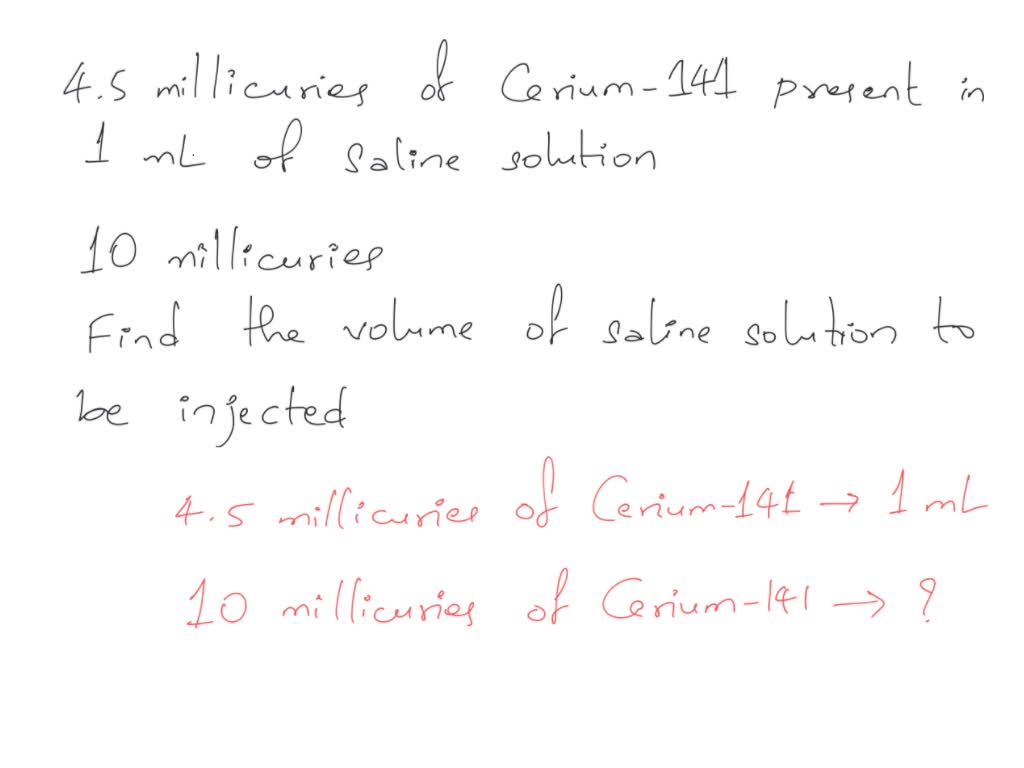 4.5 millicuries of Cerium-141 present in
1 mL of saline solution
10 millicuries
Find the volume of saline solution to
be injected
4.5 millicuries of Cerium-141 → 1 mL
10 millicuries of Cerium-141 → ?